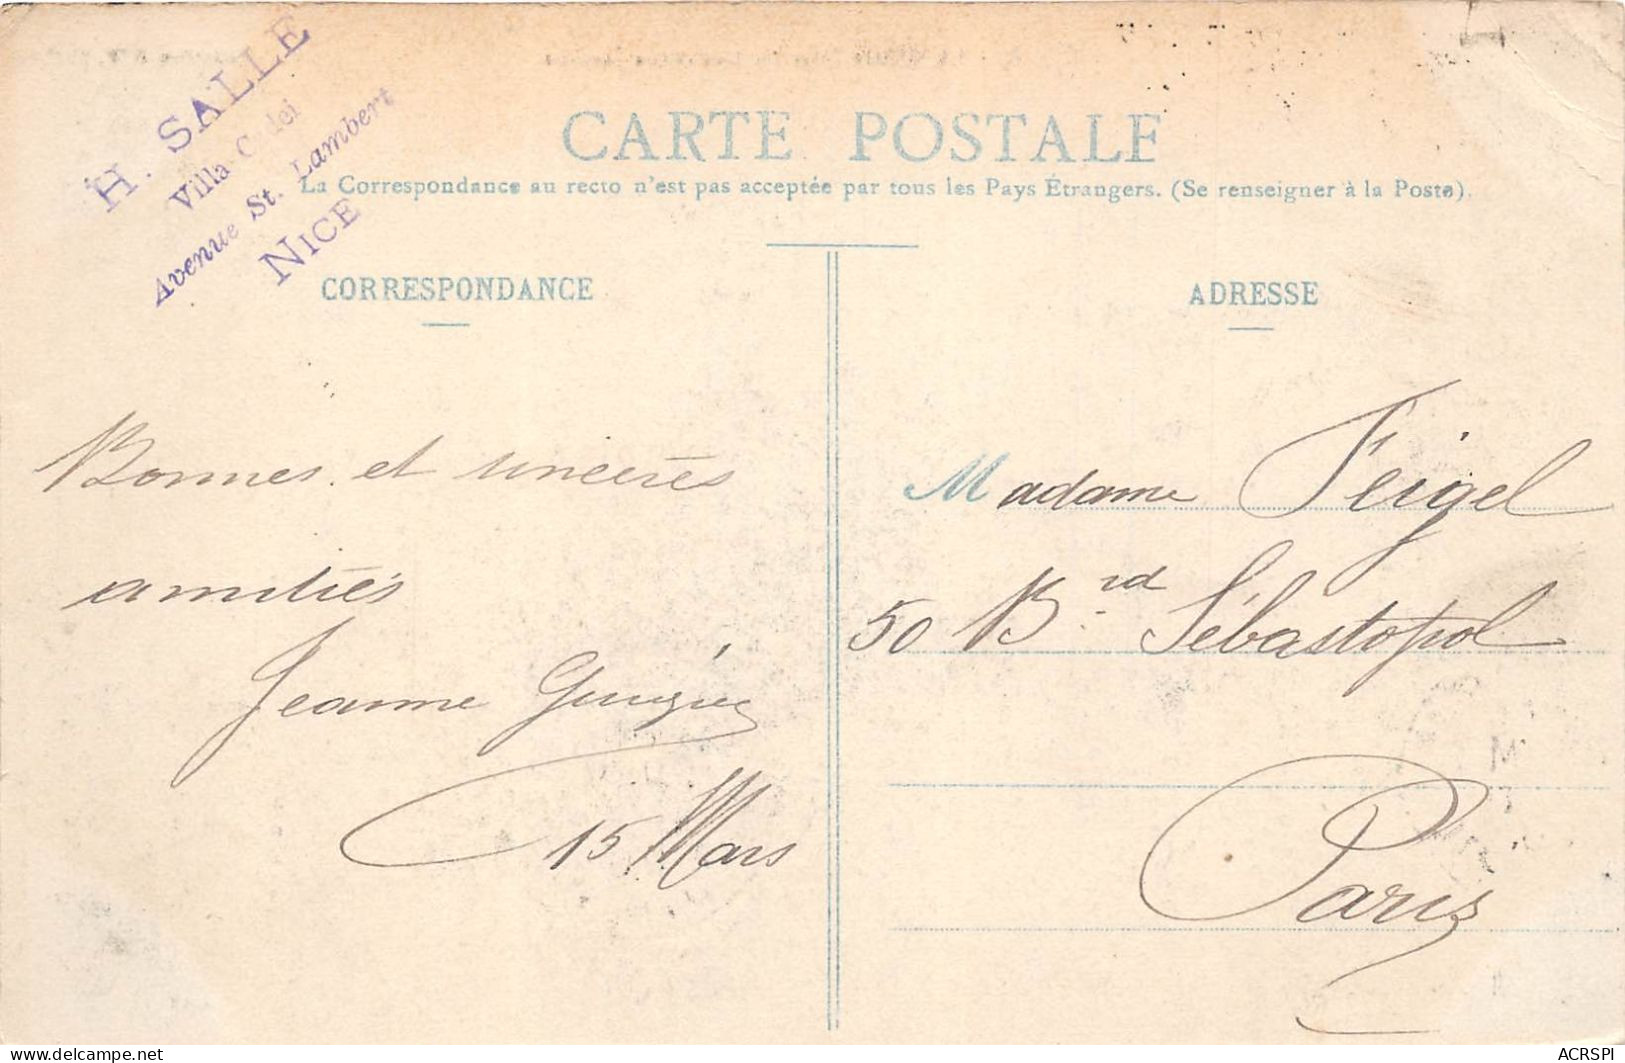 H. SALLE
Villa
Avenue St. Lambert
NICE
CARTE POSTALE
La Correspondance au recto n'est pas acceptée par tous les Pays Étrangers. (Se renseigner à la Poste).
CORRESPONDANCE
Bonnes et sincères
amitiés
Jeanne
15 Mars
ADRESSE
Madame Feigel
50 Bvd Sébastopol
Paris
delcampe.net
ACRSPI